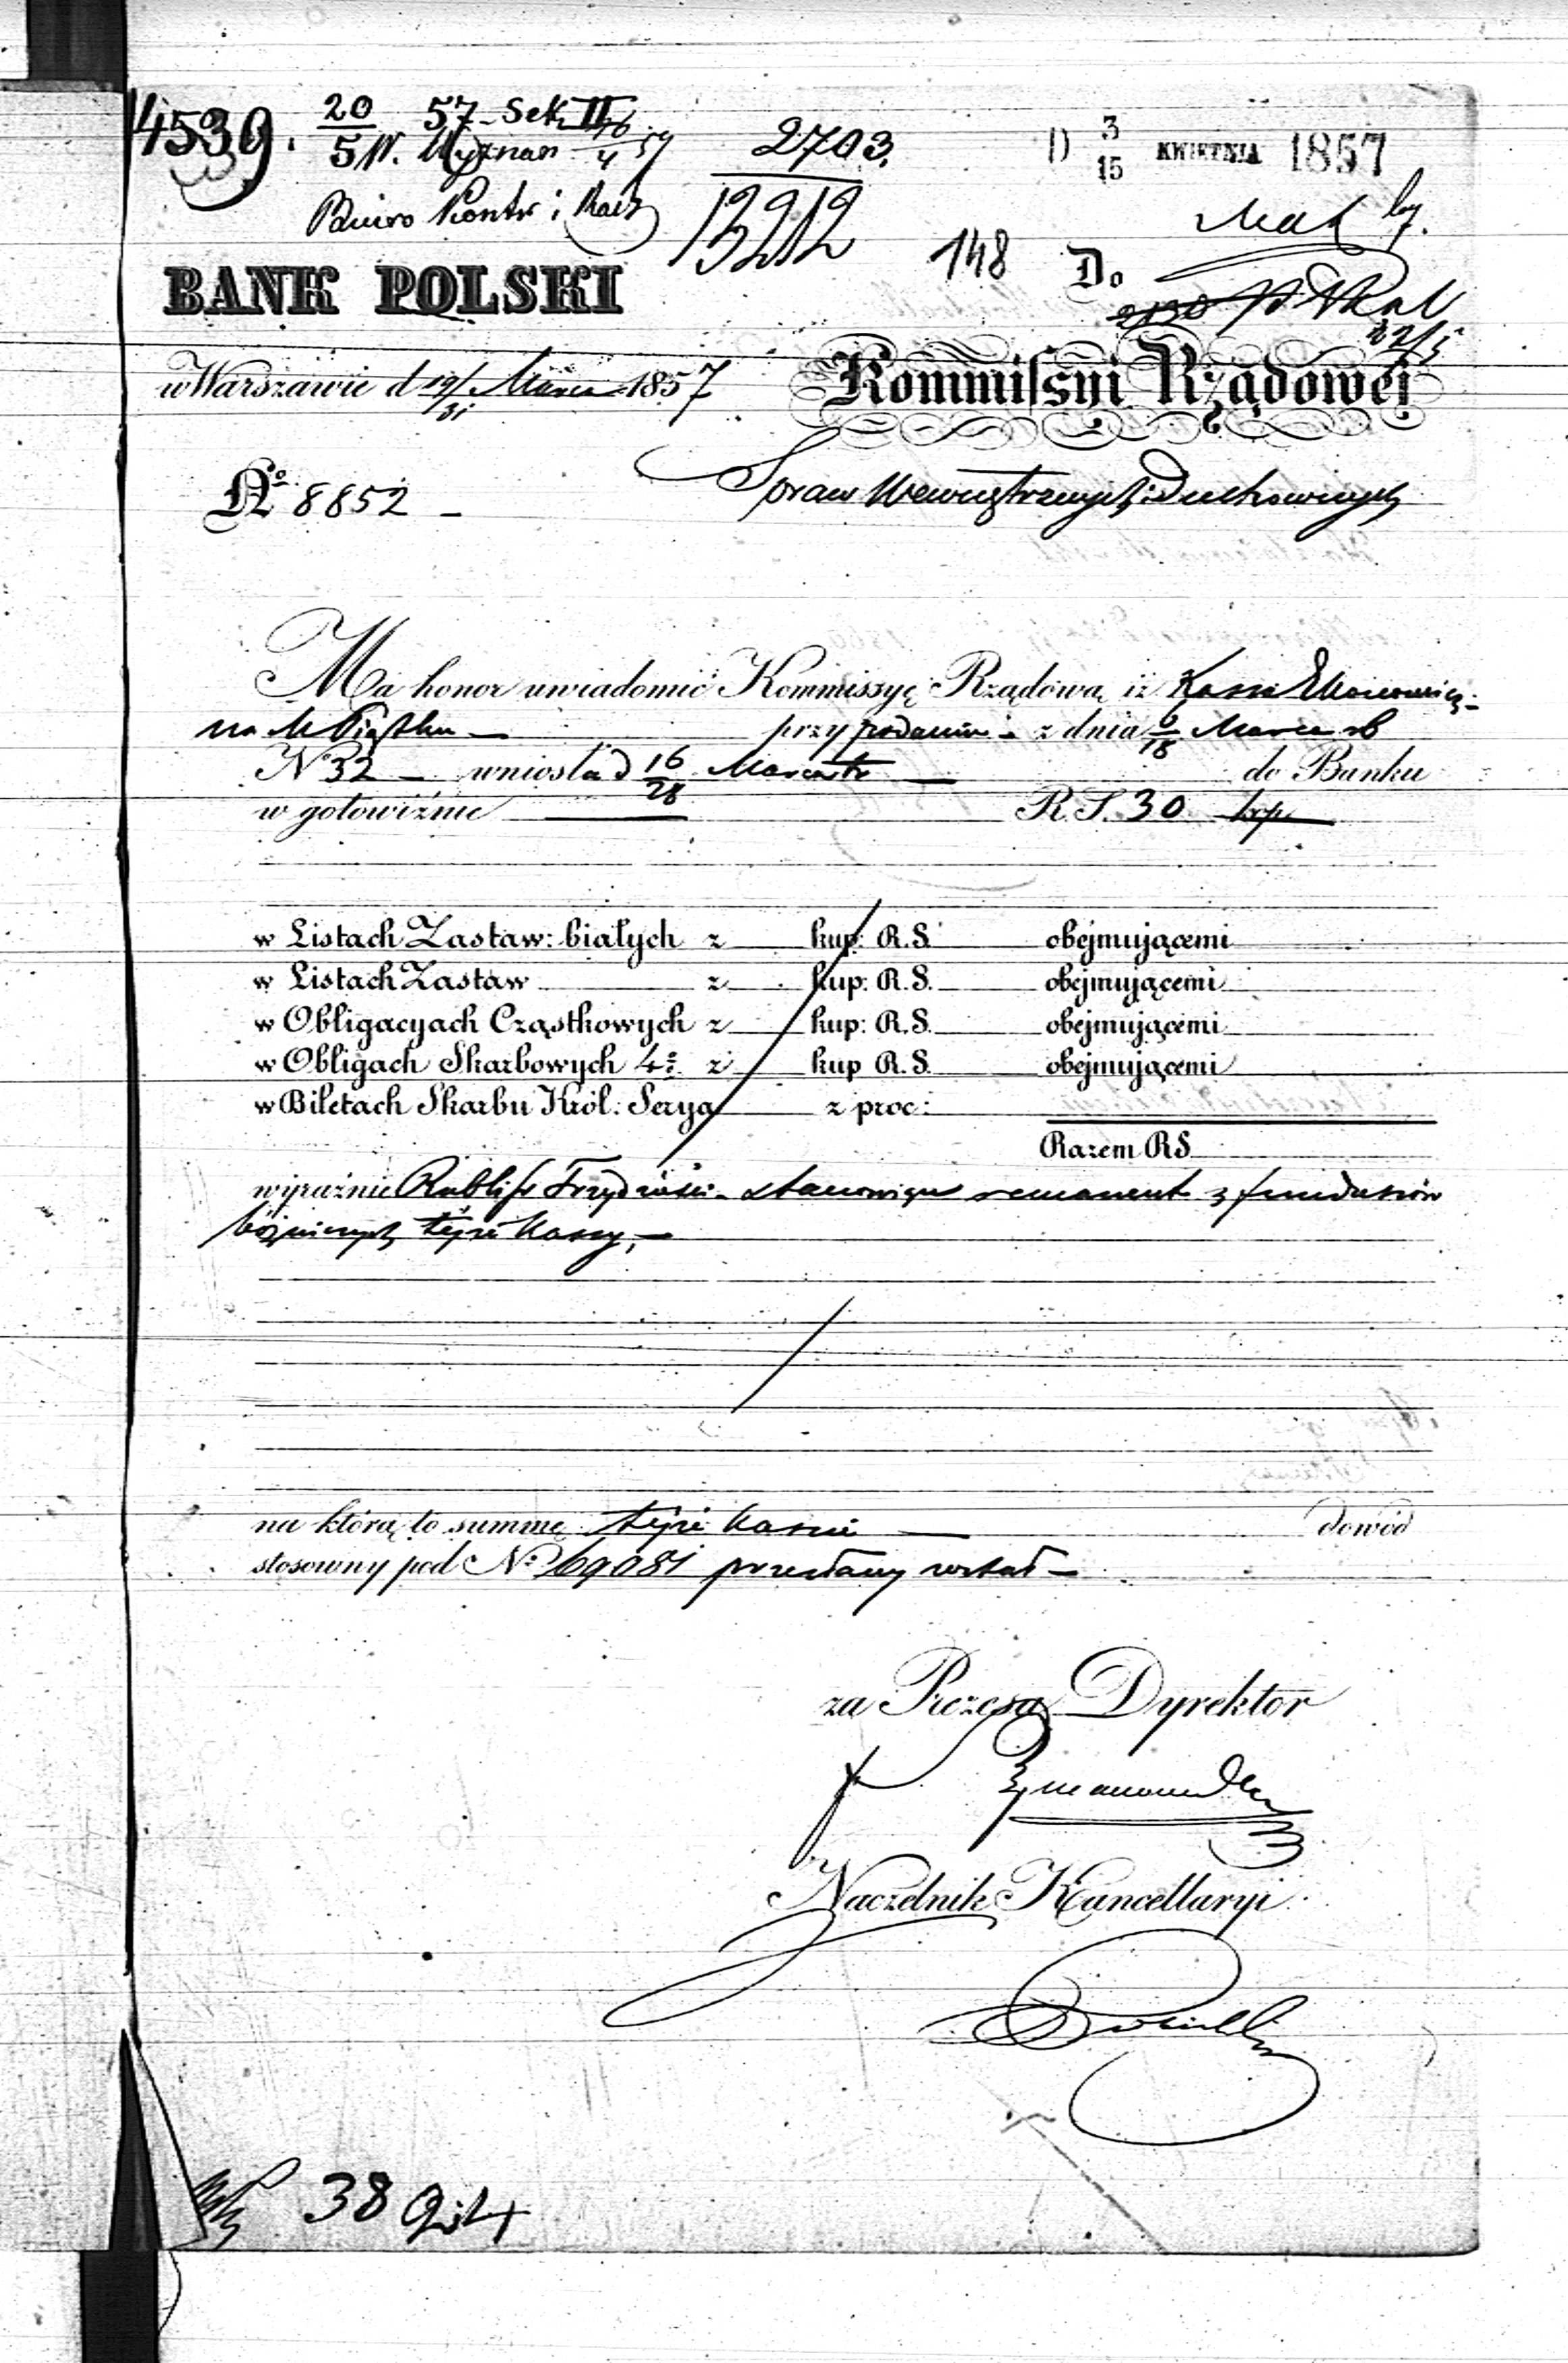 4539. 20/5 57 Sek. II
W. Wyznań 16/4 57
Biuro Kontr i Rach
2703.
13212
148
D 3/15 KWIETNIA 1857
BANK POLSKI
Do
22/5
w Warszawie d 19/31 Marca 1857
Kommissyi Rządowej
No 8852 –
Spraw Wewnętrznych i Duchownych
Ma honor uwiadomić Kommissyę Rządową iż Kassa Ekonomicz-
na M Piątku — przy podaniu z dnia 6/18 Marca rb
No 32 – wniosła d 16/28 Marca tr — do Banku
w gotowiźnie — R.S. 30 kop —
w Listach Zastaw: białych z kup: R.S. obejmującemi
w Listach Zastaw z kup: R.S. obejmującemi
w Obligacyach Cząstkowych z kup: R.S. obejmującemi
w Obligach Skarbowych 4% z kup R.S. obejmującemi
w Biletach Skarbu Król: Serya z proc:
Razem RS
wyraźnie Rubli sr Trzydzieści – stanowiące remanent z funduszów
bóżniczych tejże Kassy, —
na którą to summę tejże Kassie — dowód
stosowny pod No 69081 przesłany został —
za Prezesa Dyrektor
Naczelnik Kancellaryi
38